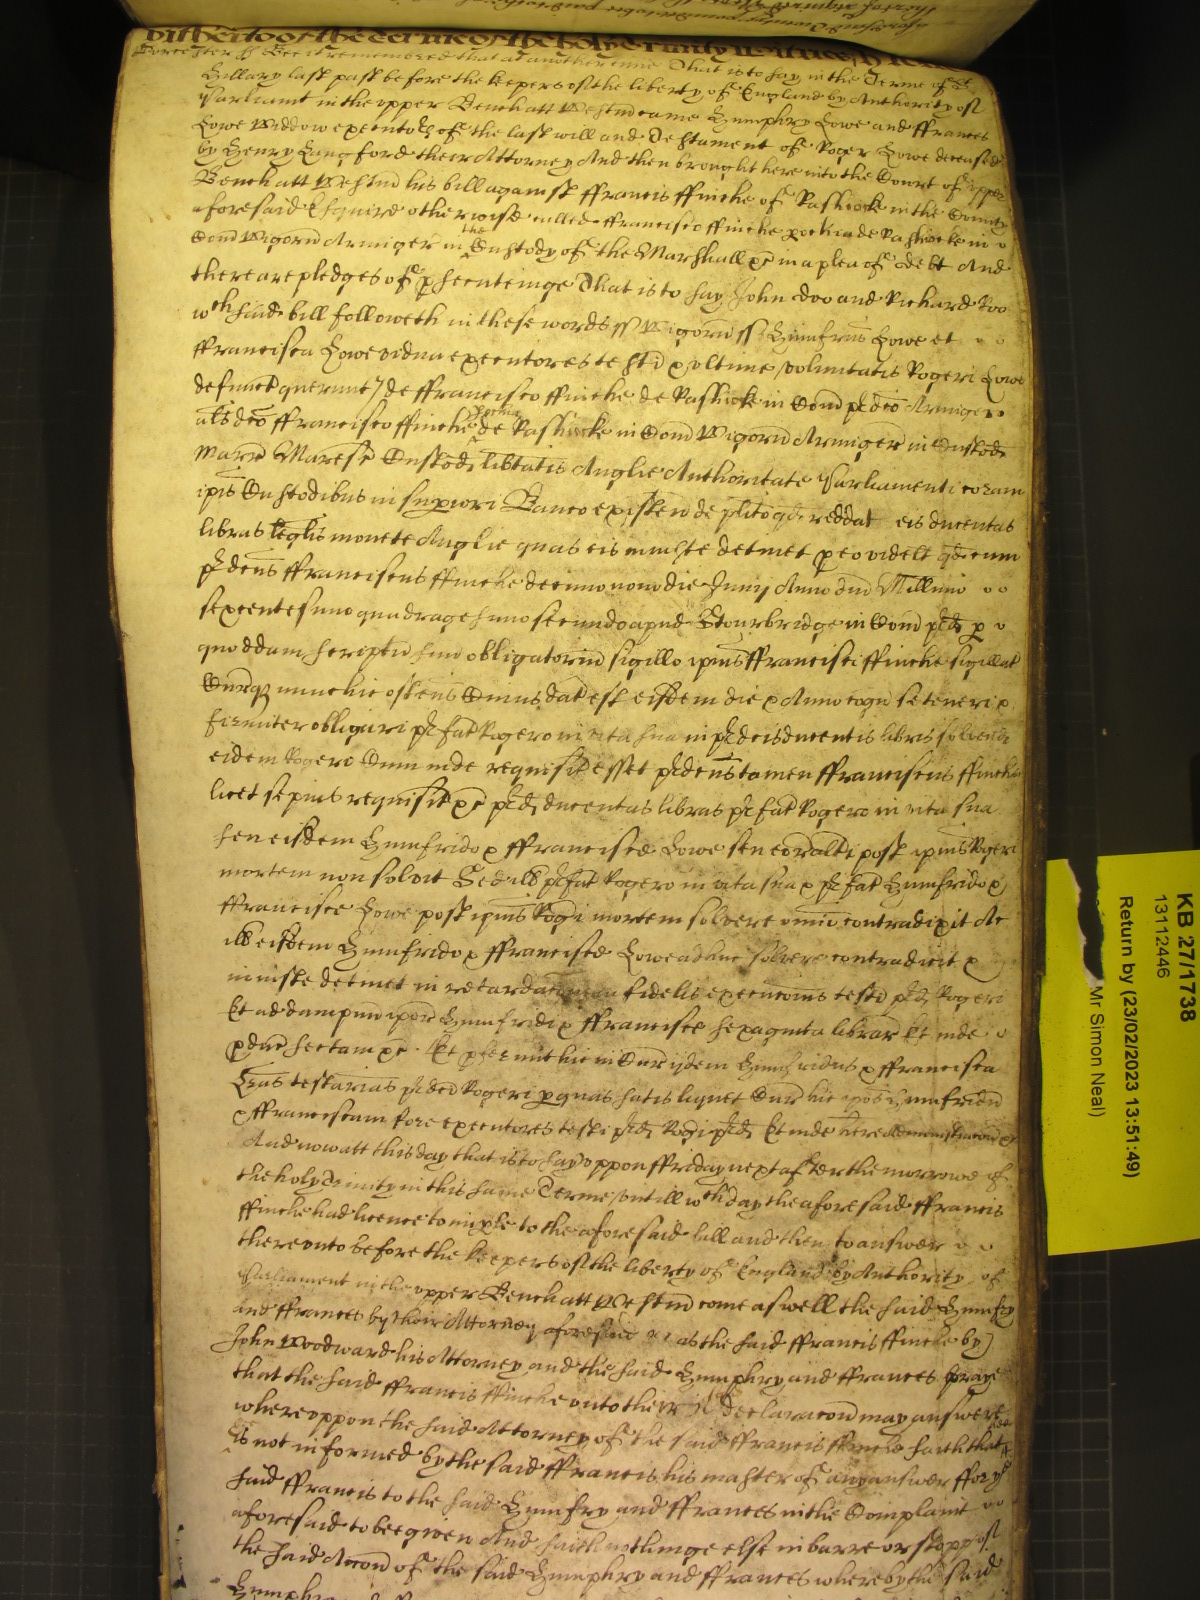 hitherto of the Terme of the holy Trinity
Worcester ss Bee it remembred that at another time That is to say in the Terme of St
Hillary last past before the keepers of the liberty of England by Authority of
Parliamt in the upper Bench att Westmr came Humphry Lowe and ffrances
Lowe Widdow executors of the last will and Testament of Roger Lowe deceased
by Henry Langford their Attorney And then brought here into the Court of upper
Bench att Westmr his bill against ffrancis ffinche of Rashock in the County
aforesaid Esquire otherwise called ffrancisco ffinche de Rashocke in
Com Wigorn Armiger in the Custody of the Marshall &c in a plea of debt And
there are pledges of prsecuteinge That is to say John Doo and Richard Roo
wch said bill followeth in these words ss Wigorn ss Humfrus Lowe et
ffrancisca Lowe vidua executores testi & ultime voluntatis Rogeri Lowe
defunct querunt de ffrancisco ffinche de Rashocke in Com pdco Armigero
als dco ffrancisco ffinche de Rashocke in Com Wigorn Armiger in Custod
Marr Maresc Custod libtatis Anglie Authoritate Parliamenti coram
ipis Custodibus in supiori Banco existen de plito qd reddat eis ducentas
libras leglis monete Anglie quas eis iniuste detinet p eo videlt qd cum
pdcus ffranciscus ffinche decimo nono die Junij Anno dni Millimo
sexcentesimo quadragesimo secundo apud Stourbridge in Com pd p
quoddam scriptu suu obligatoriu sigillo ipius ffrancisci ffinche sigillat
Curq nunc hic ostens Cuius dat est eisdem die & Anno cogn se teneri &
firmiter obligari pfat Rogero in vita sua in pdcis ducentis libris solvend
eidem Rogero Cum inde requisit esset pdcus tamen ffranciscus ffinche
licet sepius requisit &c pd ducentas libras pfat Rogero in vita sua
seu eisdem Humfrido & ffrancisce Lowe seu eor alti post ipius Rogeri
mortem non solvit Sed ill pfat Rogero in vita sua & pfat Humfrido &
ffrancisce Lowe post ipius Rogi mortem solvere omio contradixit Ac
ill eisdem Humfrido & ffrancisce Lowe adhuc solvere contradicit &
iniuste detinet in retardacionem fidelis execucois testi pd Rogeri
Et ad dampnu ipor Humfridi & ffrancisce sexaginta librar Et inde
pduc sectam &c Et pferunt hic in Cur ijdem Humfridus & ffrancisca
Lras testarias pdci Rogeri p quas satis liquet Cur hic ipos Humfridu
& ffranciscam fore executores testi pd Rogi pd Et inde here administracom &c
And now att this day that is to say uppon ffriday next after the morrowe of
the holy Trinity in this same Terme untill wch day the aforesaid ffrancis
ffinche had licence to imple to the aforesaid bill and then to answer
thereunto before the keepers of the liberty of England by Authority of
Parliament in the upper Bench att Westmr come aswell the said Humfry
and ffrances by their Attorney aforesaid as the said ffrancis ffinche by
John Woodward his Attorney and the said Humphry and ffrances praye
that the said ffrancis ffinche unto their declaracon may answere
whereuppon the said Attorney of the said ffrancis ffinche saith that
is not informed by the said ffrancis his master of any answer for ye
said ffrancis to the said Humfry and ffrances in the Complaint
aforesaid to bee given And saith nothinge else in barre or stopp of
the said Accon of the said Humphry and ffrances whereby the said
Humphry
KB 27/1738
13112446
Return by (23/02/2023 13:51:49)
Mr Simon Neal)